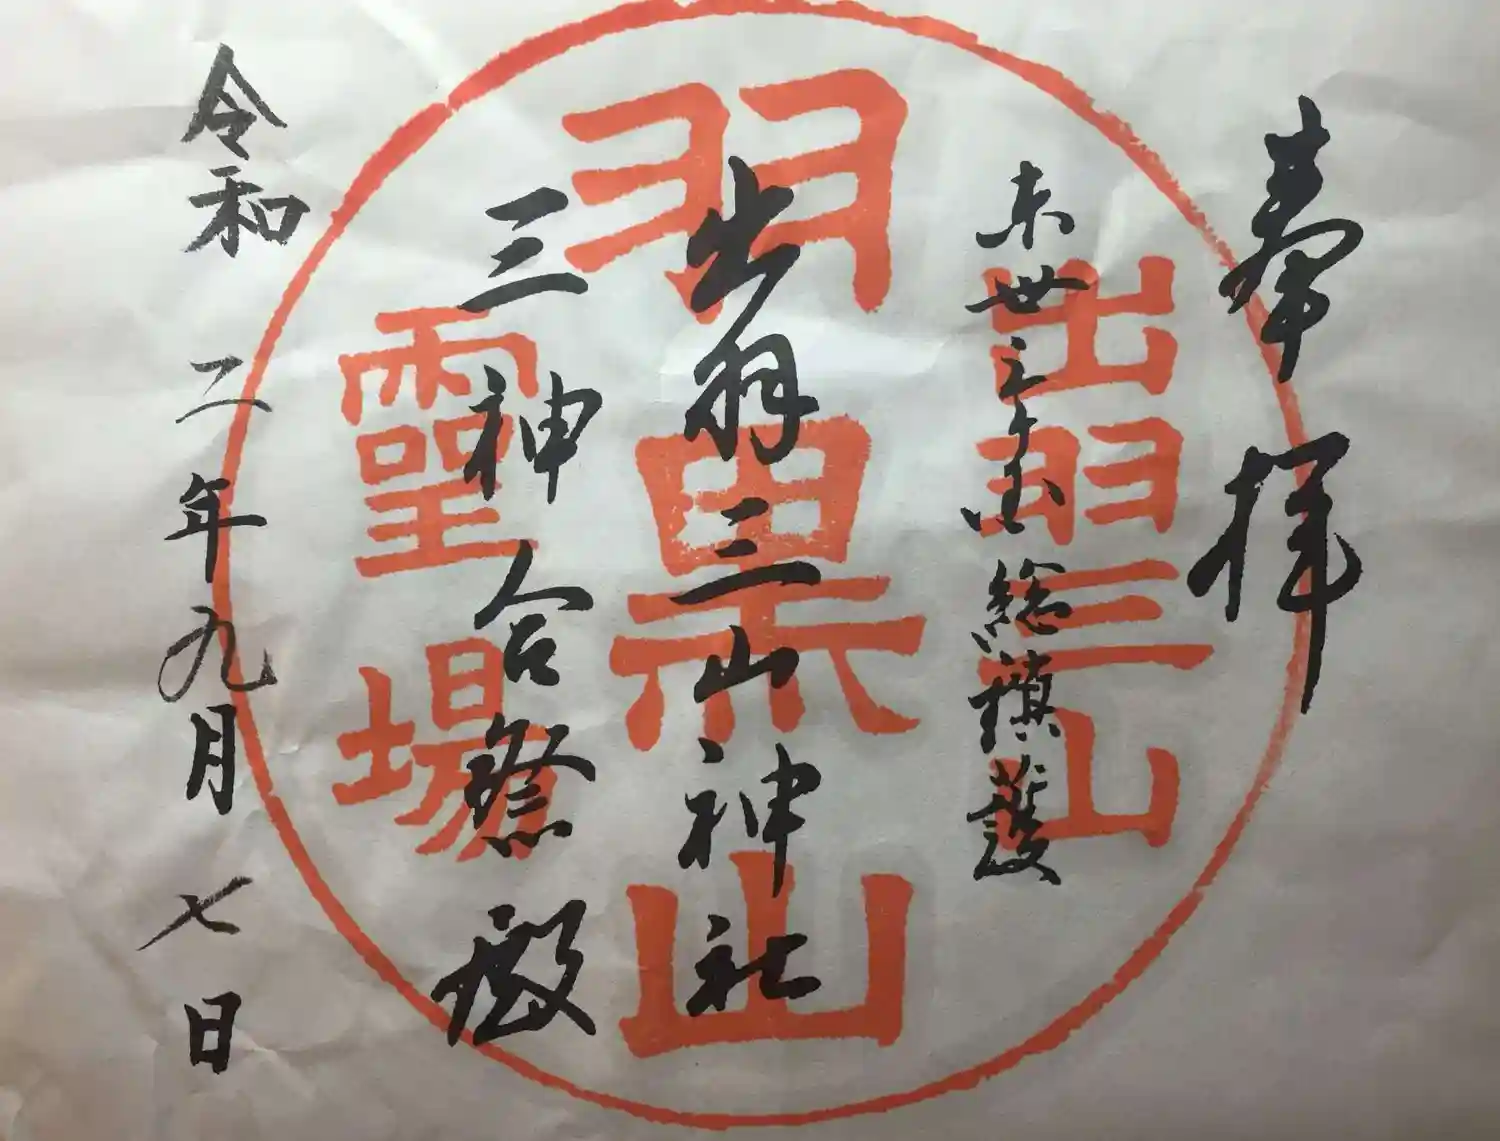 奉拝
東卅三ヶ国総鎮護
出羽三山神社
三神合祭殿
令和二年九月七日
出羽三山
羽黒山
靈場